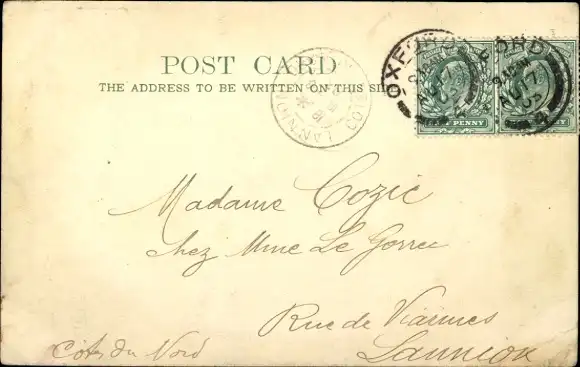 POST CARD
THE ADDRESS TO BE WRITTEN ON THIS SI
OXFORD
LANNION COTES
HALF PENNY
Madame Cozic
chez Mme Le Gorrec
Rue de Viarmes
Lannion
Côtes du Nord